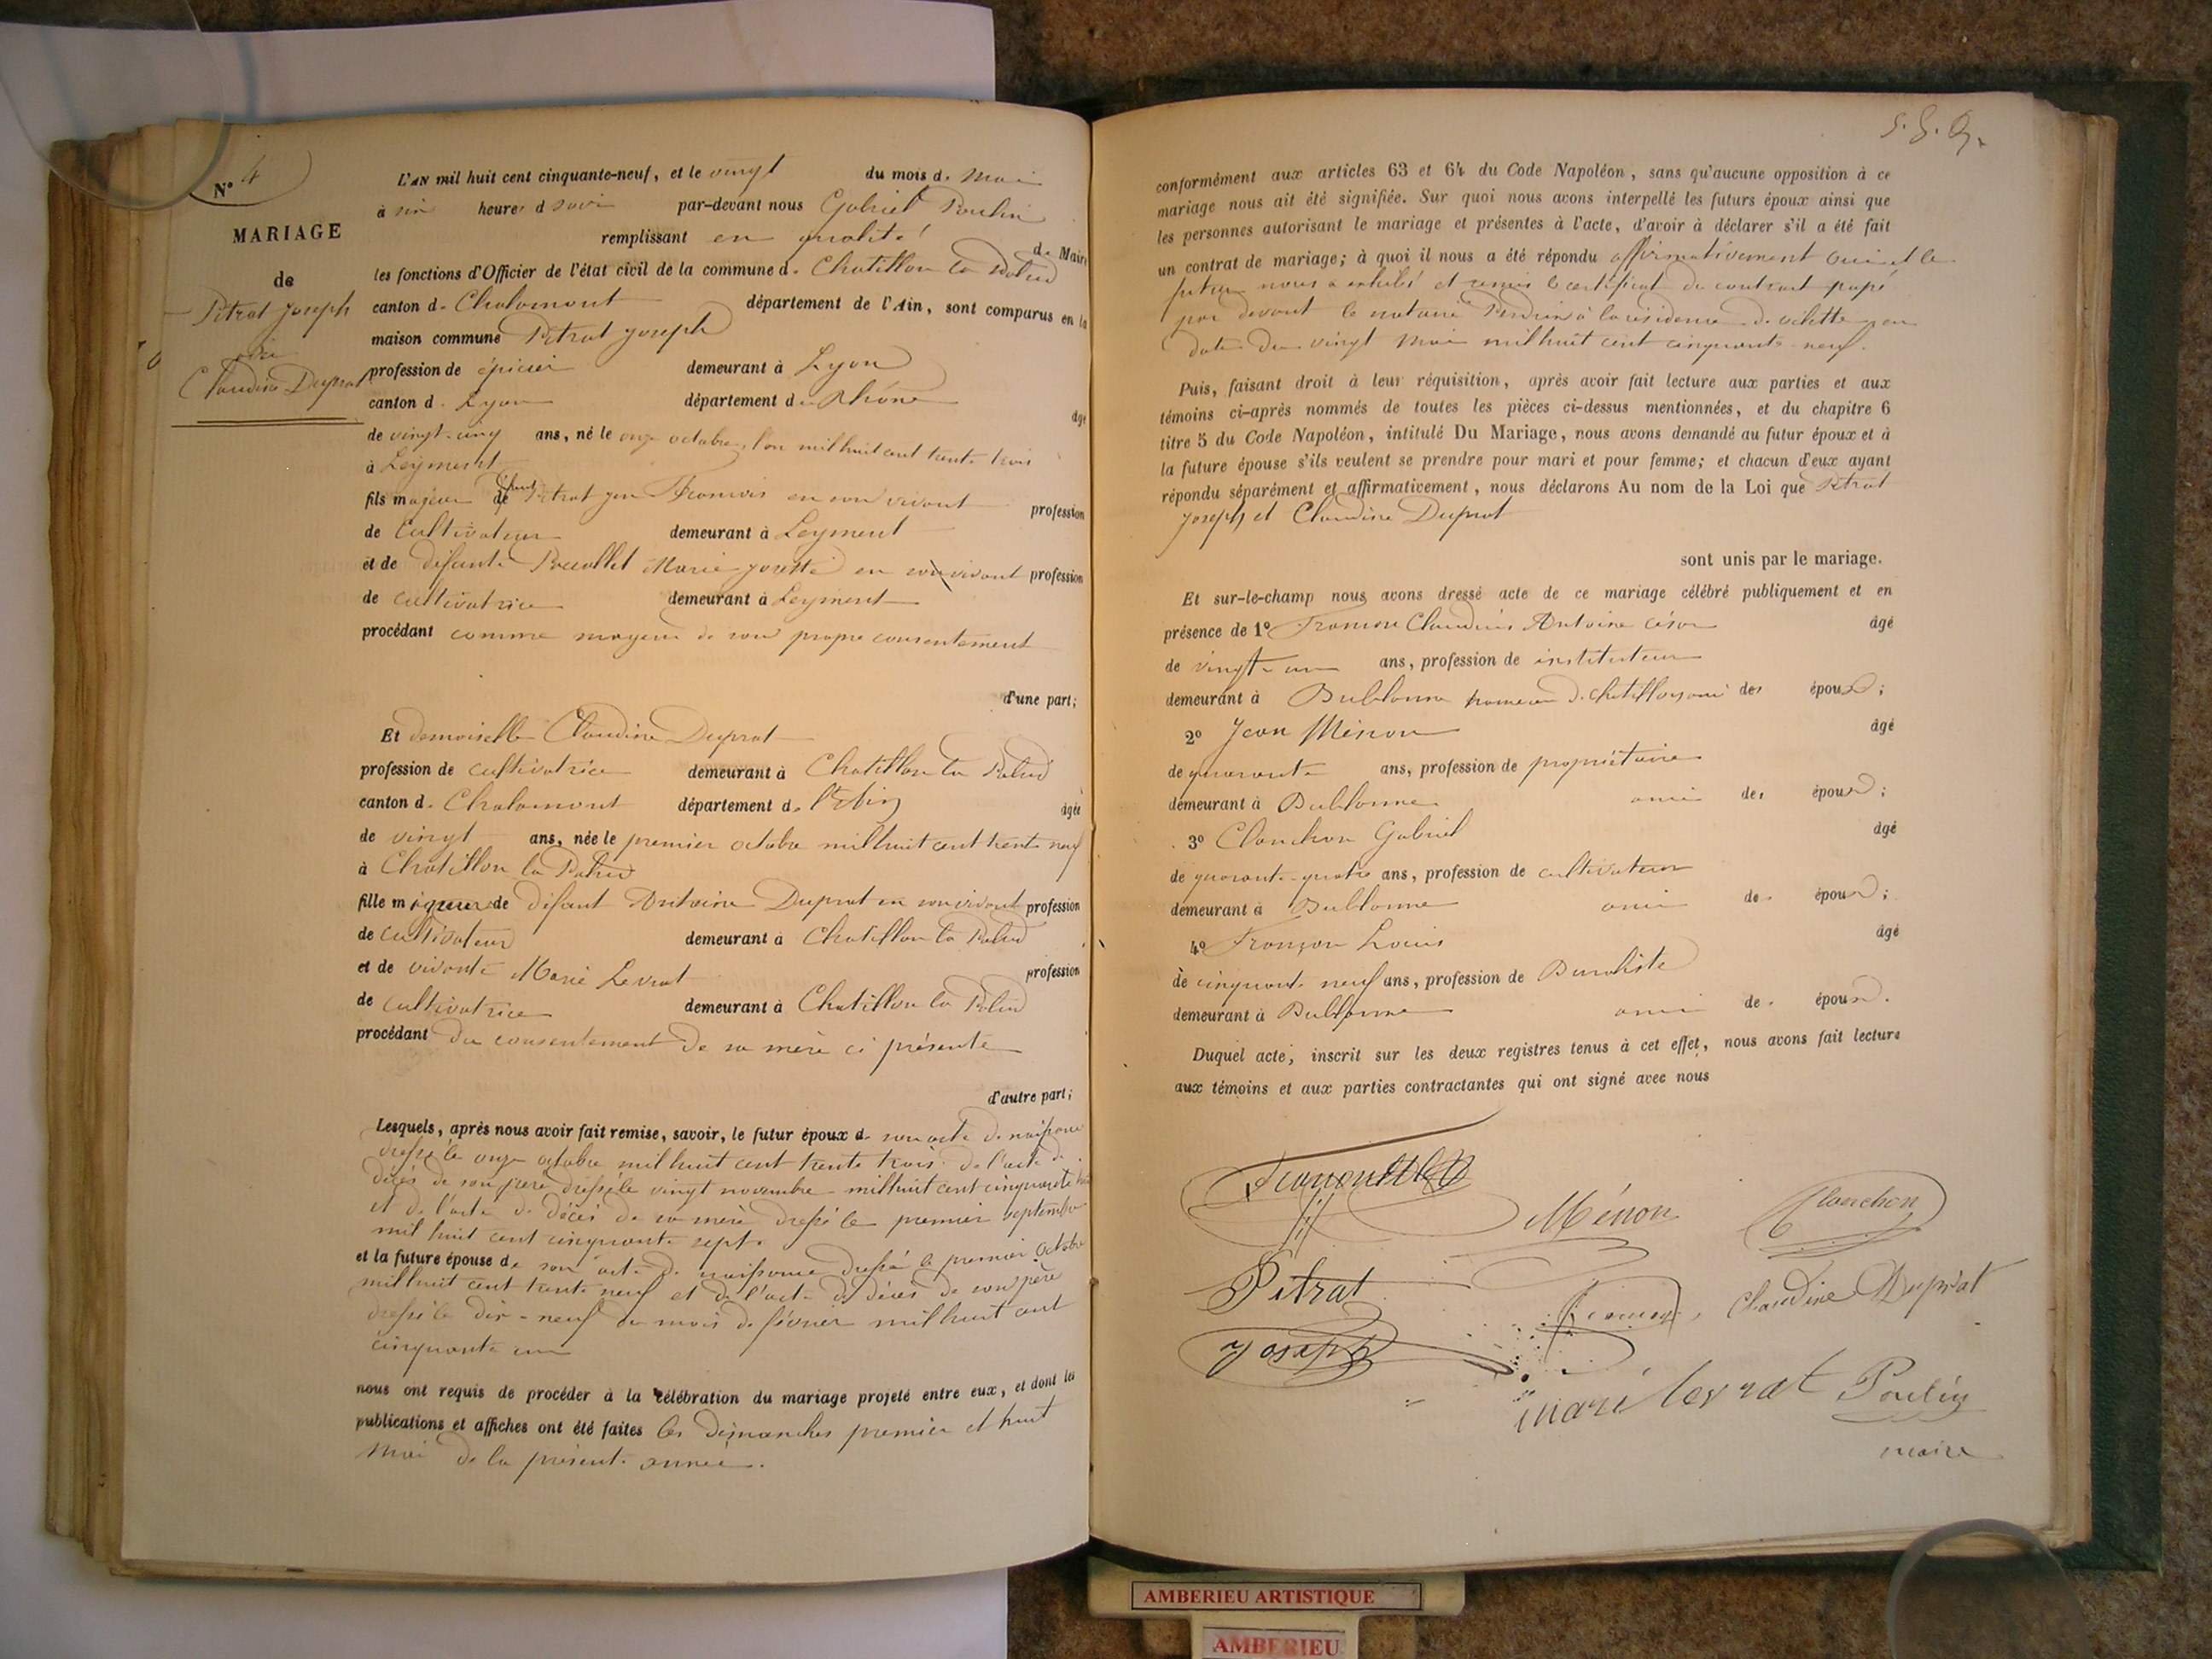 N° 4
MARIAGE
de
Pitrat Joseph
Claudine Duprat
L'AN mil huit cent cinquante-neuf, et le vingt du mois de Mai
à six heures d soir par-devant nous Gabriel Poulin
remplissant en qualité de Maire
les fonctions d'Officier de l'état civil de la commune de Chatillon la Palud
canton de Chalamont département de l'Ain, sont comparus en la
maison commune Pitrat Joseph
profession de épicier demeurant à Lyon
canton d. Lyon département du Rhône âgé
de vingt-cinq ans, né le onze octobre, l'an mil huit cent trente trois
à Leyment
fils majeur de défunt Pitrat Jean François en son vivant profession
de Cultivateur demeurant à Leyment
et de défunte Marie Josette en son vivant profession
de cultivatrice demeurant à Leyment
procédant comme majeur de son propre consentement
d'une part;
Et demoiselle Claudine Duprat
profession de cultivatrice demeurant à Chatillon la Palud
canton de Chalamont département de l'Ain âgée
de vingt ans, née le premier octobre mil huit cent trente neuf
à Chatillon la Palud
fille mineure de défunt Antoine Duprat en son vivant profession
de cultivateur demeurant à Chatillon la Palud
et de vivante Marie Levrat profession
de cultivatrice demeurant à Chatillon la Palud
procédant du consentement de sa mère ci présente
d'autre part;
Lesquels, après nous avoir fait remise, savoir, le futur époux de son acte de naissance
dressé le onze octobre mil huit cent trente trois de l'acte de
décès de son père dressé le vingt novembre mil huit cent cinquante
et de l'acte de décès de sa mère dressé le premier septembre
mil huit cent cinquante sept.
et la future épouse de son acte de naissance dressé le premier octobre
mil huit cent trente neuf et de l'acte de décès de son père
dressé le dix-neuf du mois de février mil huit cent
cinquante un
nous ont requis de procéder à la célébration du mariage projeté entre eux, et dont les
publications et affiches ont été faites les dimanches premier et huit
Mai de la présente année.
conformément aux articles 63 et 64 du Code Napoléon, sans qu'aucune opposition à ce
mariage nous ait été signifiée. Sur quoi nous avons interpellé les futurs époux ainsi que
les personnes autorisant le mariage et présentes à l'acte, d'avoir à déclarer s'il a été fait
un contrat de mariage; à quoi il nous a été répondu affirmativement oui et le
futur nous a exhibé et remis le certificat du contrat passé
par devant le notaire Perdrix à la résidence de vilette en
date du vingt Mai mil huit cent cinquante neuf.
Puis, faisant droit à leur réquisition, après avoir fait lecture aux parties et aux
témoins ci-après nommés de toutes les pièces ci-dessus mentionnées, et du chapitre 6
titre 5 du Code Napoléon, intitulé Du Mariage, nous avons demandé au futur époux et à
la future épouse s'ils veulent se prendre pour mari et pour femme; et chacun d'eux ayant
répondu séparément et affirmativement, nous déclarons Au nom de la Loi que Pitrat
Joseph et Claudine Duprat
sont unis par le mariage.
Et sur-le-champ nous avons dressé acte de ce mariage célébré publiquement et en
présence de 1° Claudius Antoine César âgé
de vingt-un ans, profession de instituteur
demeurant à Bublanne hameau de Chatillon, ami des époux;
2° Jean Ménon âgé
de quarante ans, profession de propriétaire
demeurant à Bublanne ami des époux;
3° Clanchon Gabriel âgé
de quarante-quatre ans, profession de cultivateur
demeurant à Bublanne ami des époux;
4° Françon Louis âgé
de cinquante neuf ans, profession de Buraliste
demeurant à Bublanne ami des époux.
Duquel acte, inscrit sur les deux registres tenus à cet effet, nous avons fait lecture
aux témoins et aux parties contractantes qui ont signé avec nous
Ménon Clanchon
Pitrat
Joseph
Claudine Duprat
marie levrat Poulin
maire
AMBERIEU ARTISTIQUE
AMBERIEU